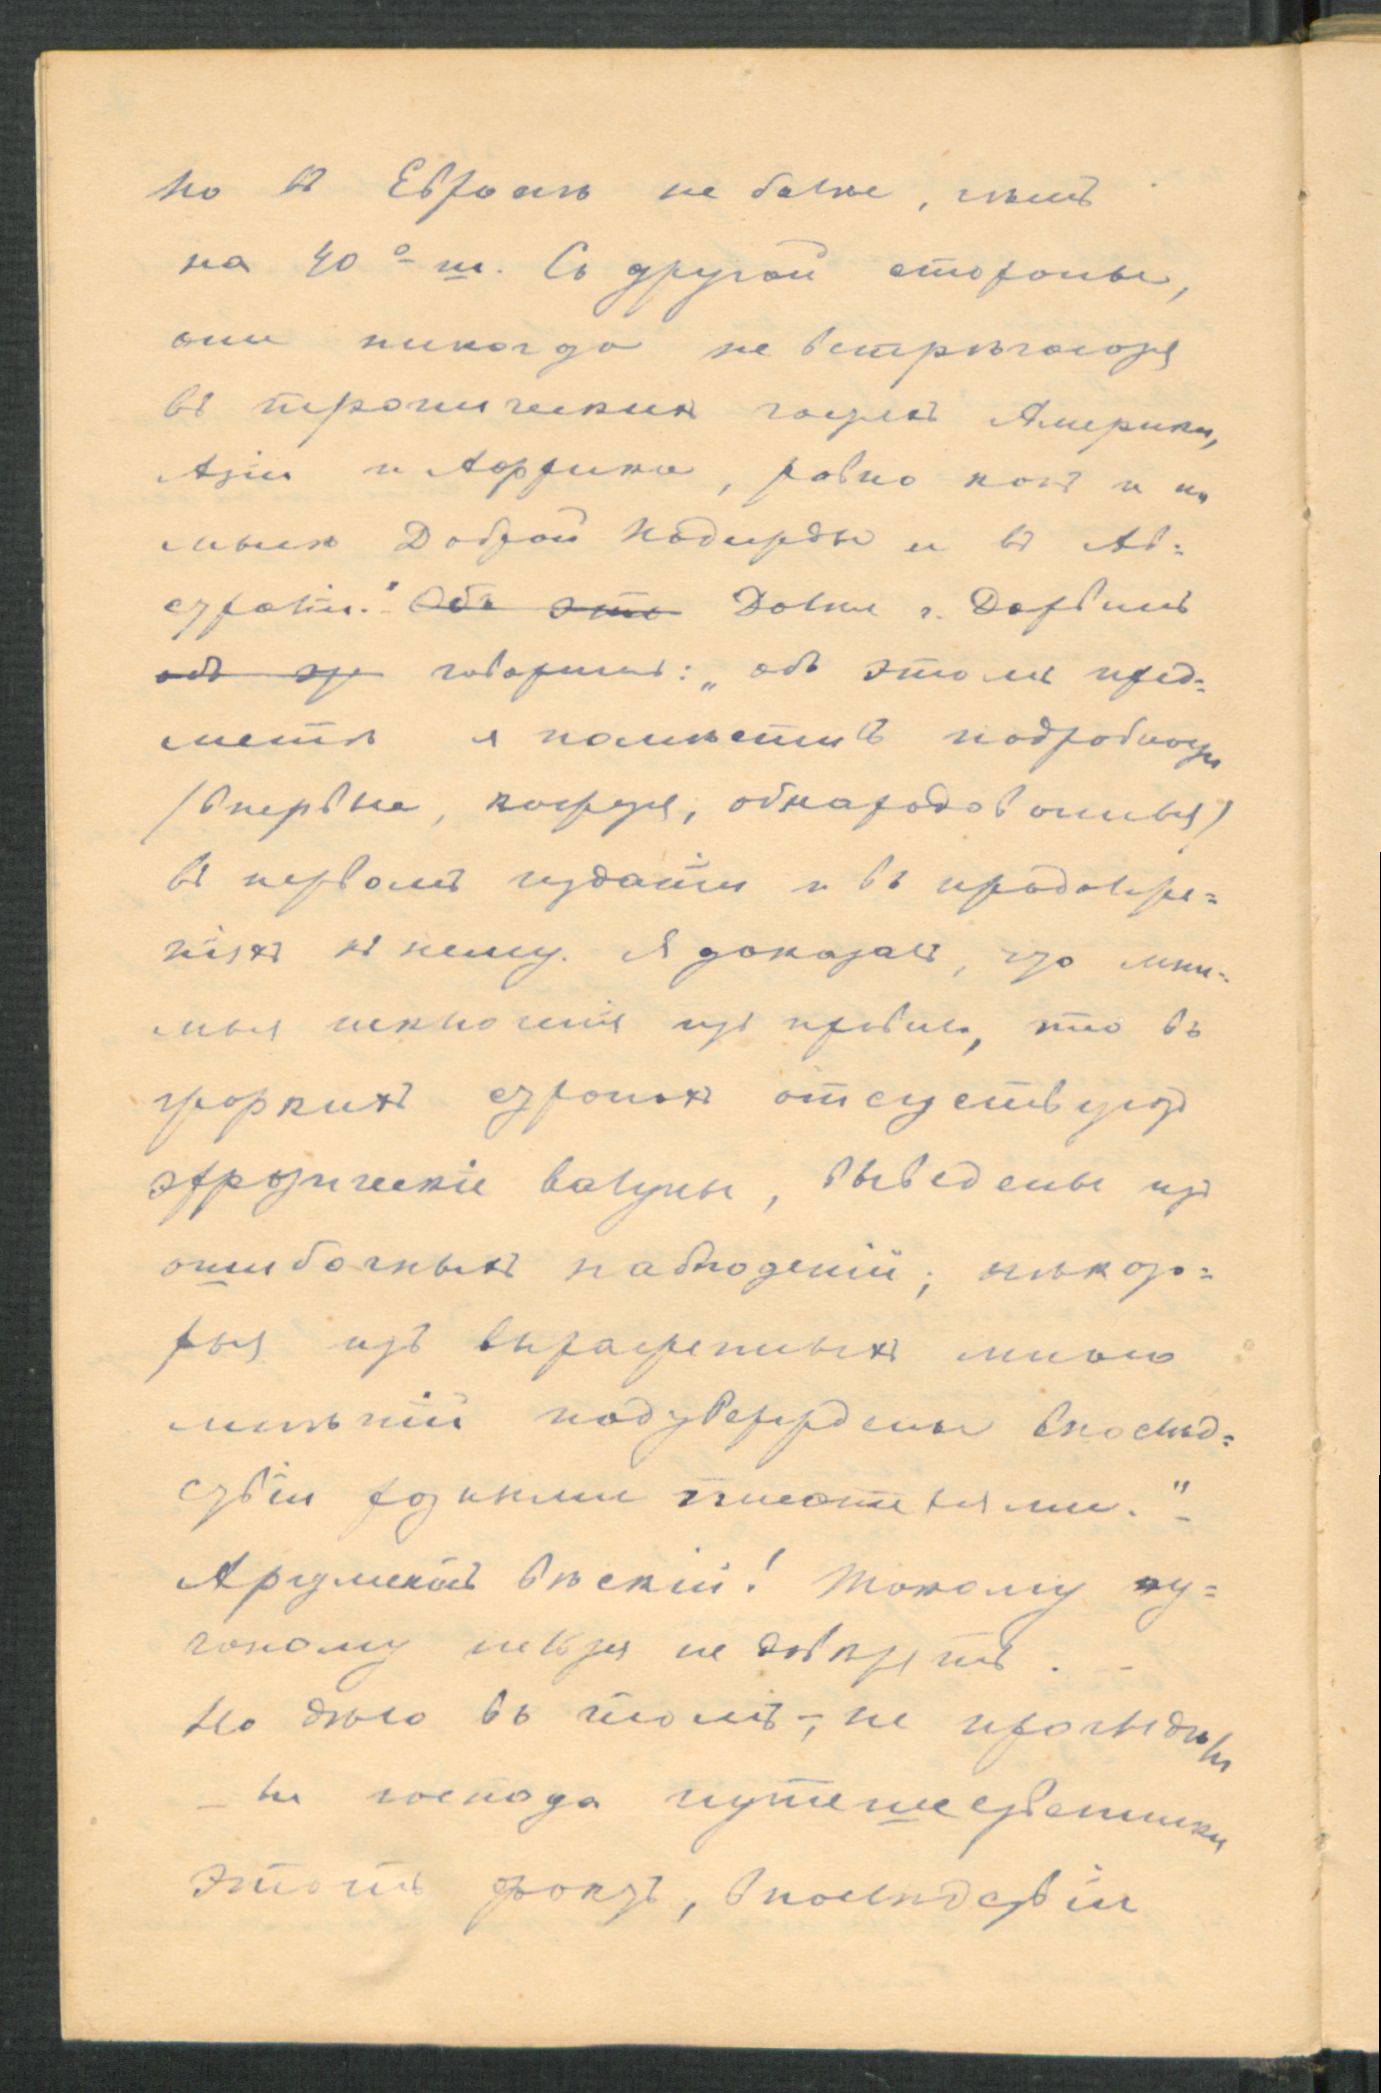 но въ Европѣ не далѣе, чѣмъ
на 40° ш. Съ другой стороны,
они никогда не встрѣчаются
въ тропическихъ частяхъ Америки,
Азіи и Африки, равно какъ и на
мысѣ Доброй Надежды и въ Ав=
страліи." Объ это Далѣе г. Дарвинъ
объ эт говоритъ: „объ этомъ пред=
метѣ я помѣстилъ подробности
(впервые, кажется, обнародованныя)
въ первомъ изданіи и въ продолже=
ніяхъ къ нему. Я доказалъ, что мни=
мыя исключенія изъ правила, что въ
жаркихъ странахъ отсутствуютъ
эрратическіе валуны, выведены изъ
ошибочныхъ наблюденій; нѣкото=
рыя изъ выраженныхъ мною
мнѣній подтверждены впослѣд=
ствіи разными писателями."
Аргументъ вѣскій! Такому
нельзя не довѣрять. –
Но дѣло въ томъ, не проглядѣли
– ли господа путешественники
этотъ фактъ, впослѣдствіи